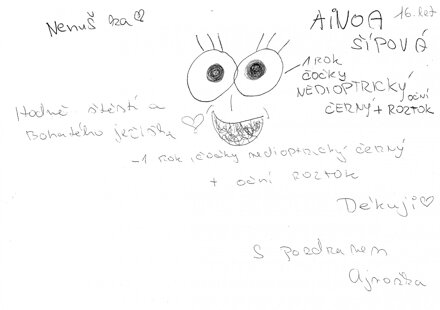 Nenuš ka♡
AiNOA 16. let
ŠÍPOVÁ
1 ROK
ČOČKY
NEDIOPTRICKÝ
ČERNÝ + OČNÍ ROZTOK
Hodně štěstí a
Bohatého ježíška ♡
– 1 rok, čočky nedioptrický černý
+ oční roztok
Děkuji♡
S pozdravem